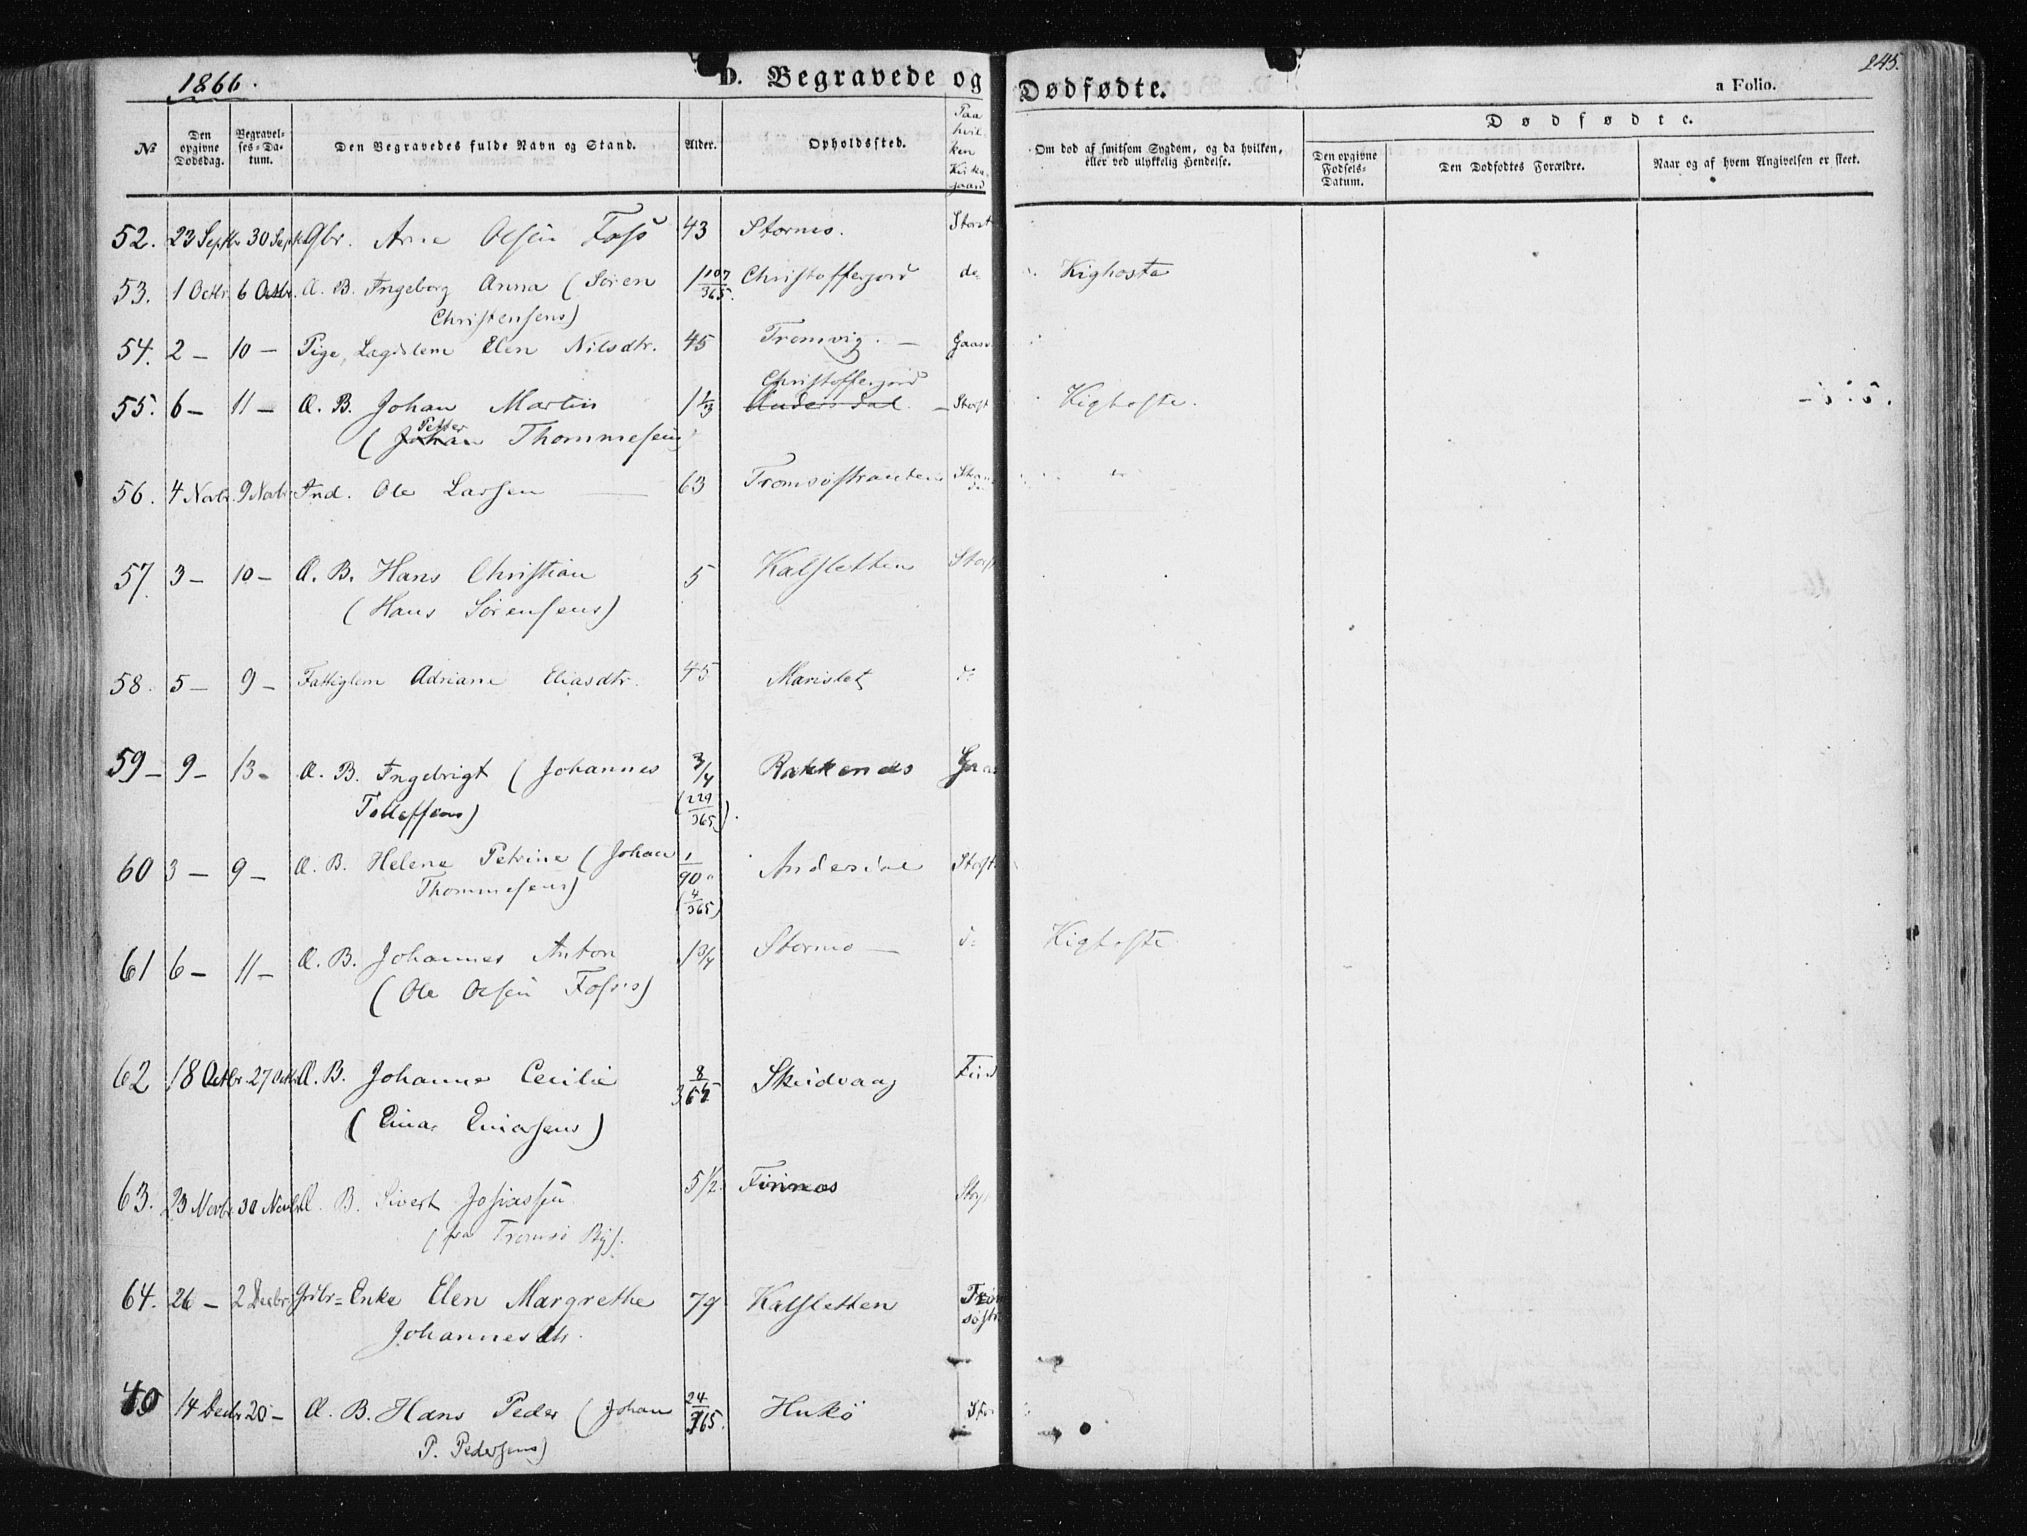 1866.
D. Begravede og
Dødfødte.
a Folio.
245.
№
Den opgivne Dødsdag.
Begravelses-Datum.
Den Begravedes fulde Navn og Stand.
Alder.
Opholdssted.
Paa hvilken Kirkegaard
Om død af smitsom Sygdom, og da hvilken, eller ved ulykkelig Hendelse.
Dødfødte.
Den opgivne Fødsels-Datum.
Den Dødfødtes Forældre.
Naar og af hvem Angivelsen er skeet.
52. 23 Septbr 30 Sept Gbr. Arne Olsen Foss 43 Stornes. Storst
53. 1 Octbr. 6 Octbr. Æ. B. Ingeborg Anna (Sören 1 107/365. Christofferjord do Kighoste
Christensens)
54. 2 — 10 — Pige, Lægdslem Elen Nilsdtr. 45 Tromvig. — Gaas
Christofferjord
55. 6 — 11 — Æ. B. Johan Martin 1 1/3 Andersdal. — Storst Kighoste.
Petter
(Johan Thommesens)
56. 4 Novbr. 9 Novbr. Ind. Ole Larsen — 63 Tromsøstranden
57. 3 — 10 — Æ. B. Hans Christian 5 Kalsletten Storst
(Hans Sörensens)
58. 5 — 9 — Fattiglem Adriane Eliasdtr. 45 Marislet do
59 — 9 — 13 — Æ. B. Ingebrigt (Johannes 3/4 Rakkenæs Gaas
Tollefsens) (229/365).
60 3 — 9 — Æ. B. Helene Petrine (Johan 1/90 Andersdal Storst
Thommesens) (4/365)
61 6 — 11 — Æ. B. Johannes Anton 1 3/4 Stormo — do Kighoste.
(Ole Olsen Foss's)
62 18 Octbr. 27 Octbr. Æ. B. Johanne Cecilie 8/365 Skudvaag
(Einar Einarsens)
63. 23 Novbr. 30 Novbr. Æ. B. Sivert Josiassen 5 1/2. Finnæs
(fra Tromsö By).
64. 26 — 2 Decbr. Grbr= Enke Elen Margrethe 79 Kalsletten Tromsöstr
Johannesdtr.
14 Decbr. 20 — Æ. B. Hans Peder (Johan 24/365. Hukö Stor
P. Pedersens)